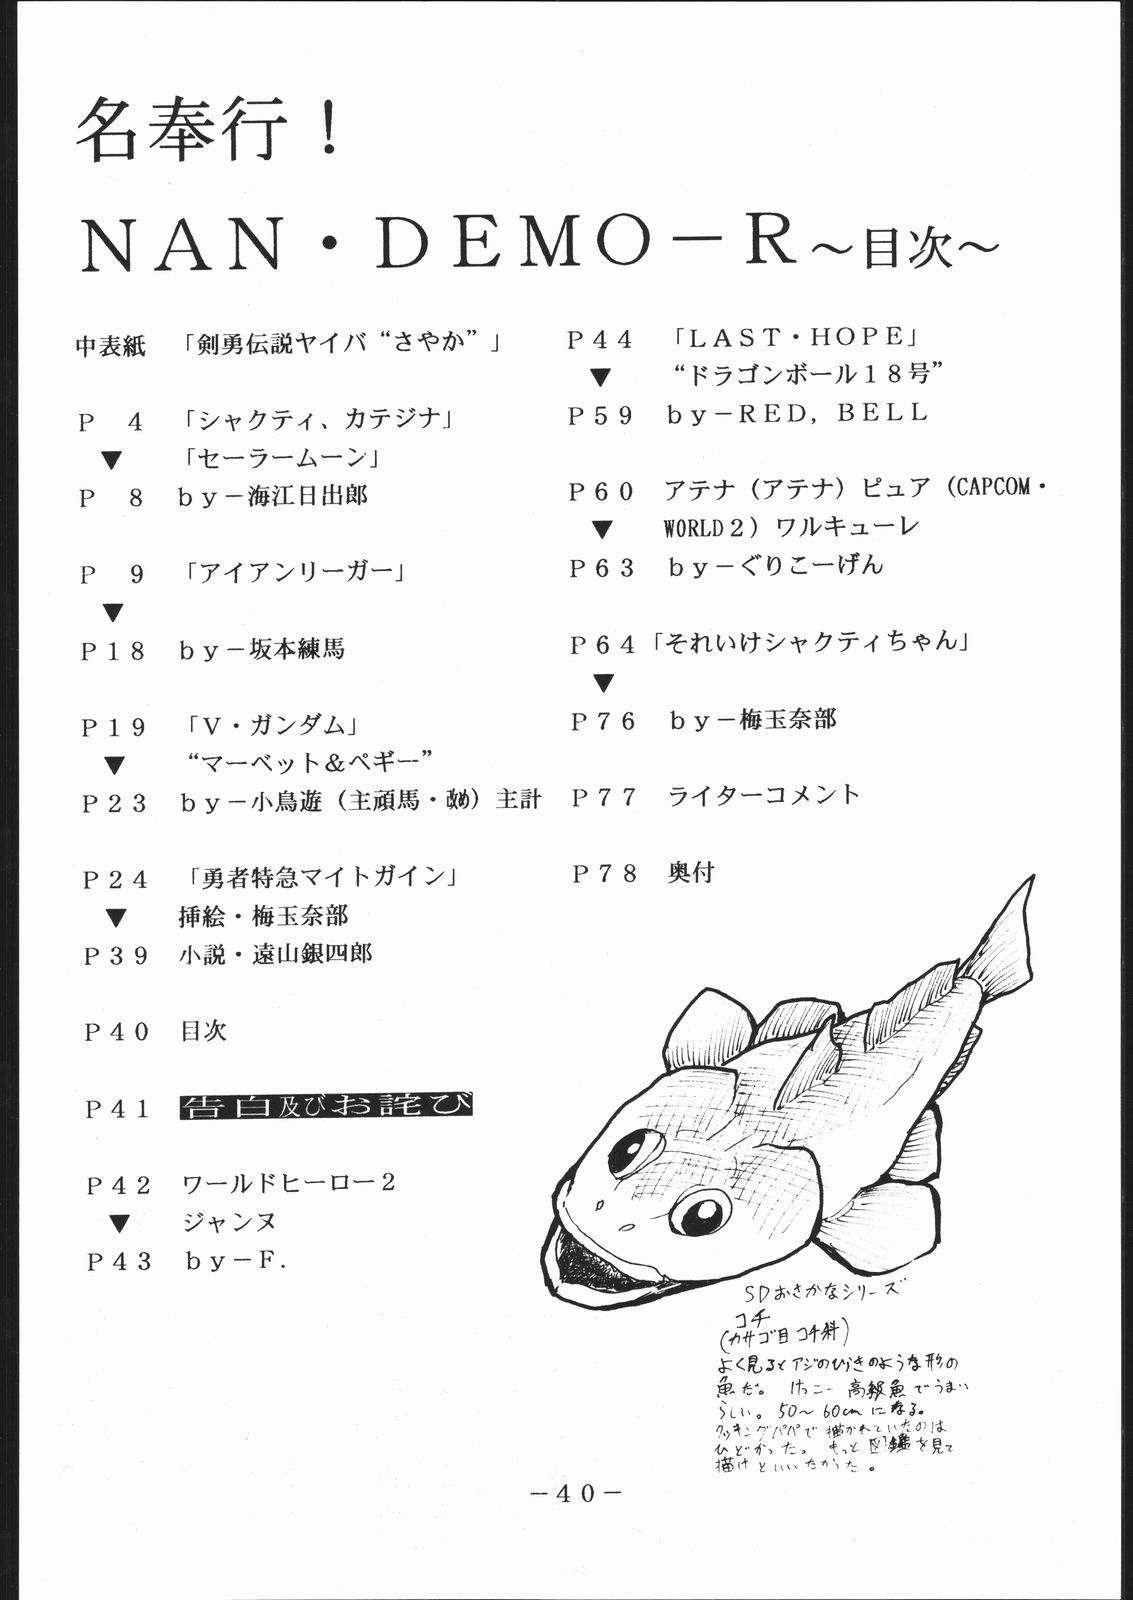 名奉行！
ＮＡＮ・ＤＥＭＯ－Ｒ～目次～
中表紙 「剣勇伝説ヤイバ“さやか”」
Ｐ ４ 「シャクティ、カテジナ」
▼ 「セーラームーン」
Ｐ ８ ｂｙ－海江日出郎
Ｐ ９ 「アイアンリーガー」
▼
Ｐ１８ ｂｙ－坂本練馬
Ｐ１９ 「Ｖ・ガンダム」
▼ “マーベット＆ペギー”
Ｐ２３ ｂｙ－小鳥遊（主頑馬・改め）主計
Ｐ２４ 「勇者特急マイトガイン」
▼ 挿絵・梅玉奈部
Ｐ３９ 小説・遠山銀四郎
Ｐ４０ 目次
Ｐ４１ 告白及びお詫び
Ｐ４２ ワールドヒーロー２
▼ ジャンヌ
Ｐ４３ ｂｙ－Ｆ．
Ｐ４４ 「ＬＡＳＴ・ＨＯＰＥ」
▼ “ドラゴンボール１８号”
Ｐ５９ ｂｙ－ＲＥＤ，ＢＥＬＬ
Ｐ６０ アテナ（アテナ）ピュア（CAPCOM・
▼ WORLD２）ワルキューレ
Ｐ６３ ｂｙ－ぐりこーげん
Ｐ６４「それいけシャクティちゃん」
▼
Ｐ７６ ｂｙ－梅玉奈部
Ｐ７７ ライターコメント
Ｐ７８ 奥付
SDおさかなシリーズ
コチ
(カサゴ目コチ科)
よく見るとアジのひらきのような形の
魚だ。けっこー高級魚でうまい
らしい。50～60cmになる。
クッキングパパで描かれていたのは
ひどかった。もっと図鑑を見て
描けといいたかった。
－４０－